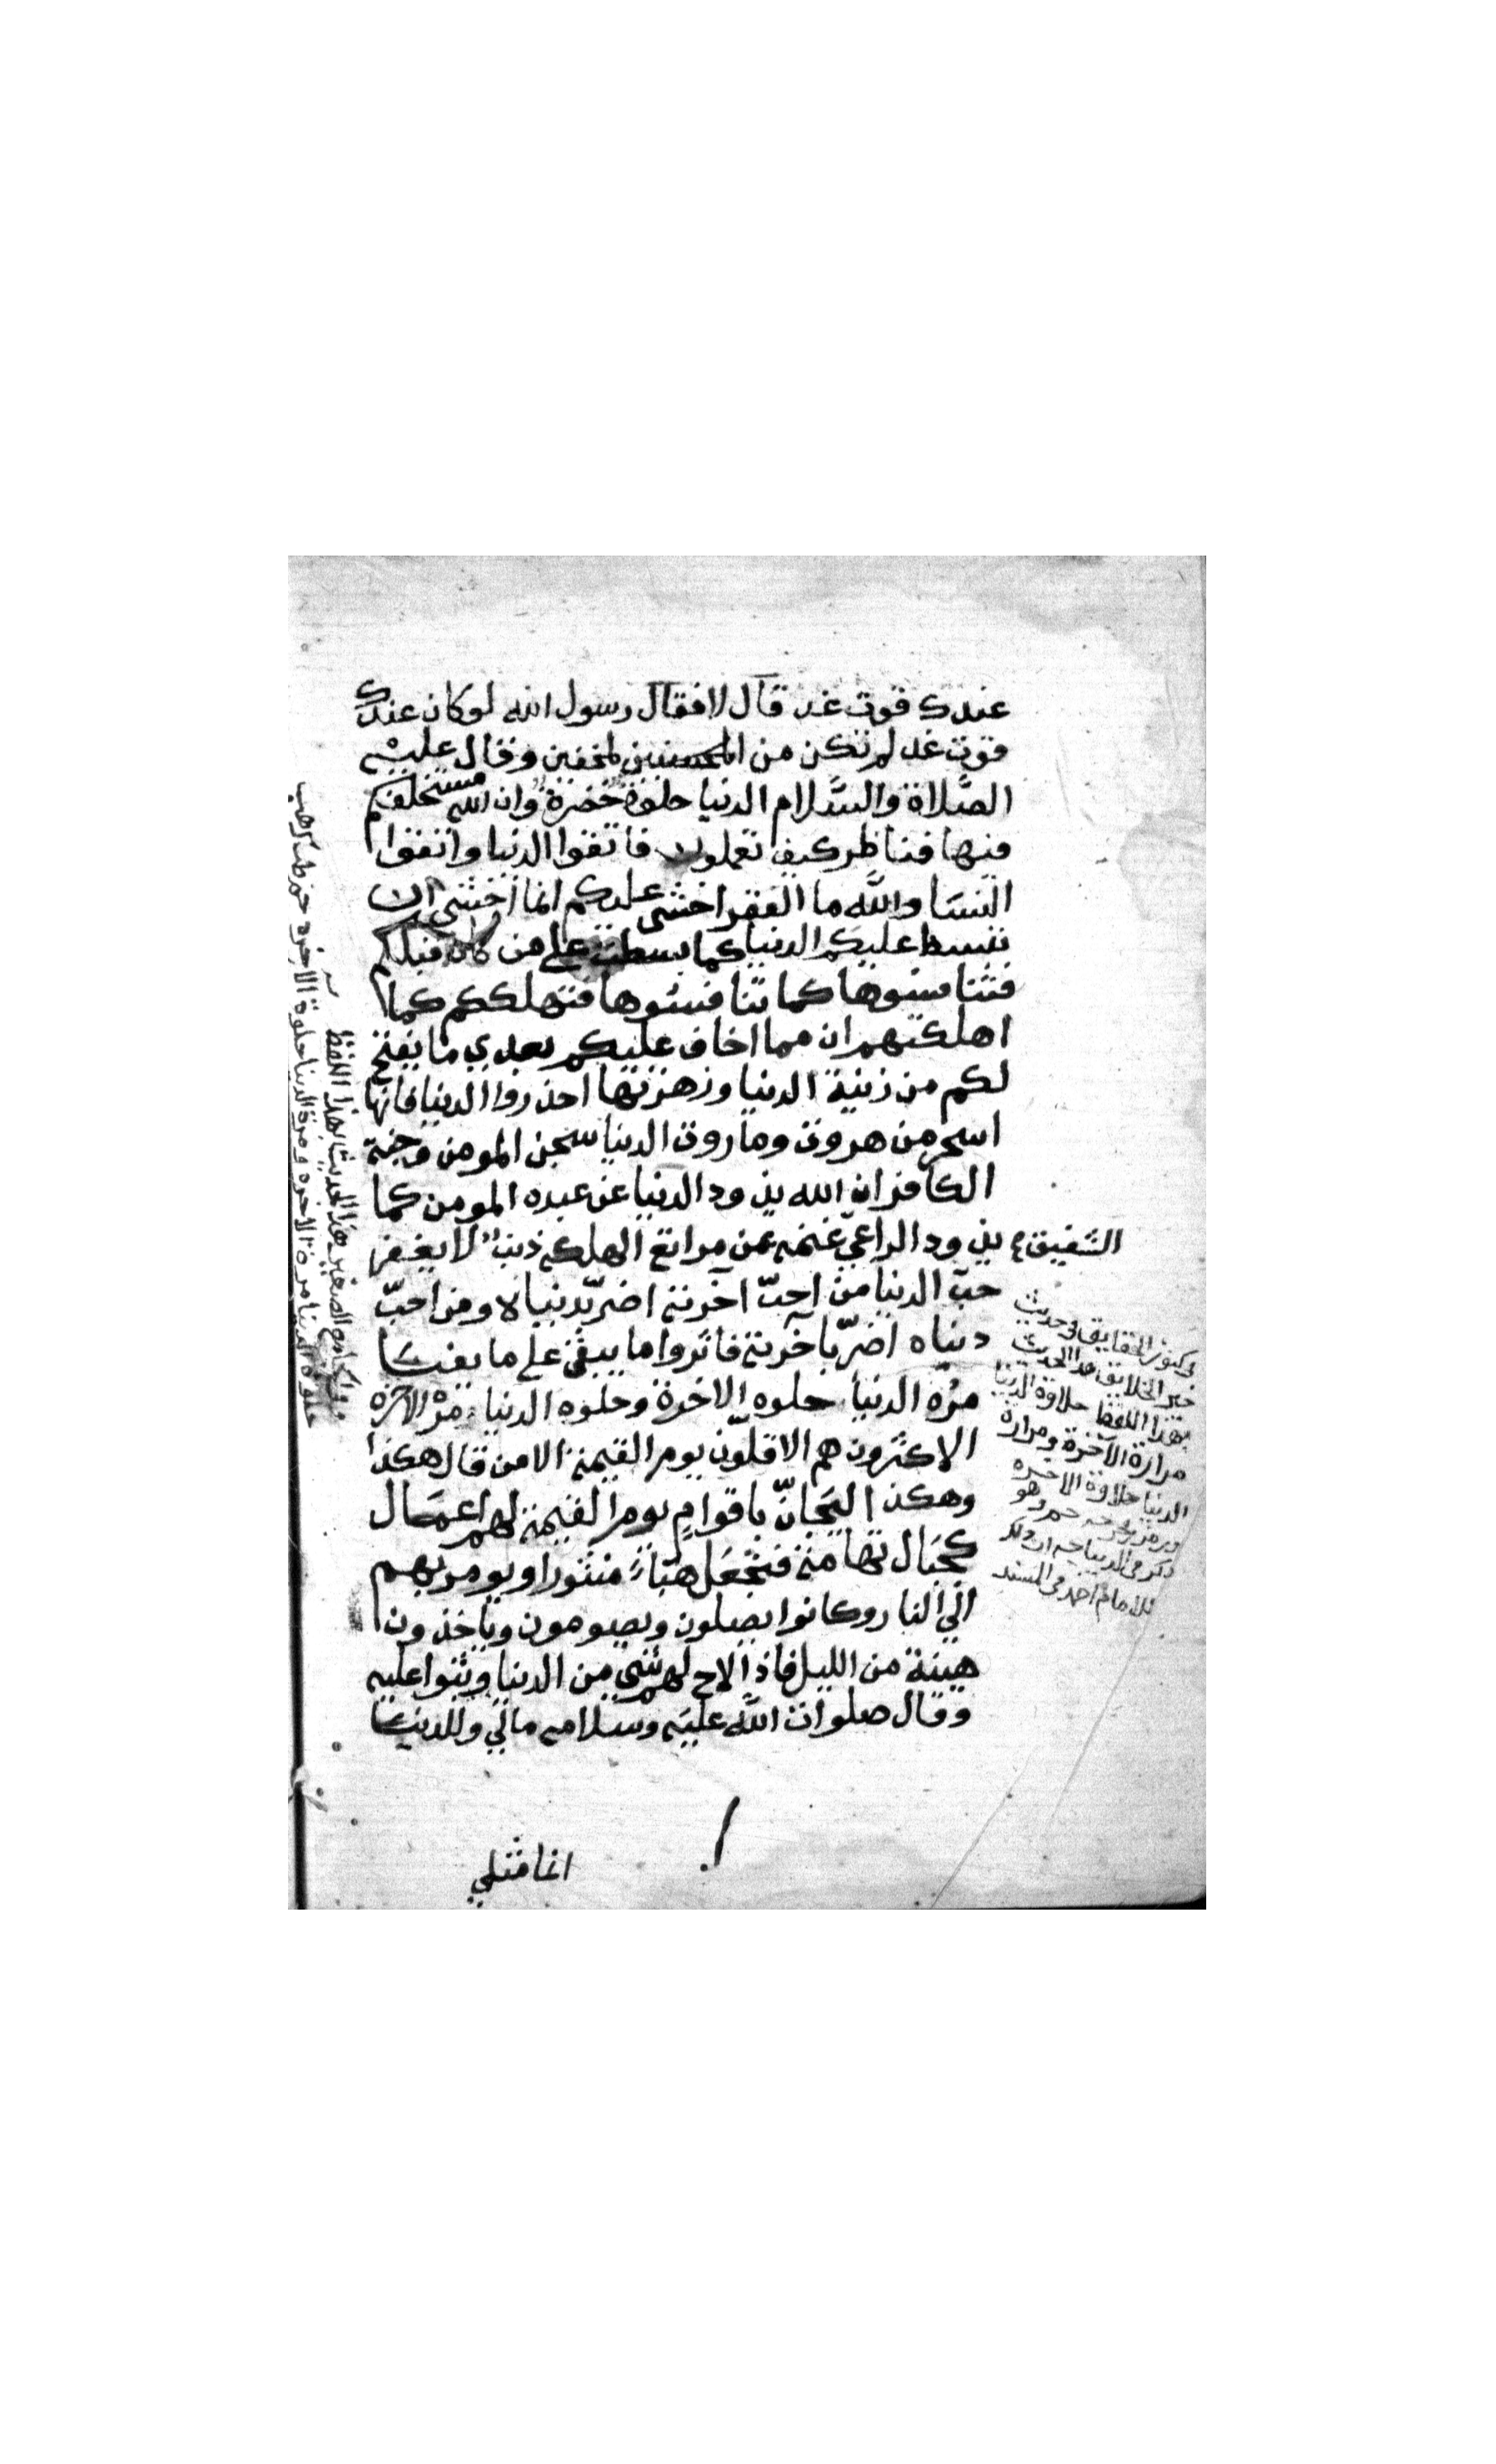 عندك قوت غد قال لا فقال رسول الله لو كان عندك
قوت غد لم تكن من المخفين وقال عليه
الصَّلاة والسَّلام الدنيا حلوة خضرة وان الله مستخلفكم
فيها فناظر كيف تعملون فاتقوا الدنيا واتقوا
النسَا والله ما الفقر اخشى عليكم انما اخشى ان
تبسط عليكم الدنيا كما بسطت على من كان قبلكم
فتنافسوها كما تنافسوها فتهلككم كما
اهلكتهم ان مما اخاف عليكم بعدي ما يفتح
لكم من زينة الدنيا وزهرتها احذروا الدنيا فانها
اسحر من هروت وماروت الدنيا سجن المومن وجنة
الكافر ان الله يذود الدنيا عن عبده المومن كما
يذود الراعي الشفيق غنمه عن مراتع الهلكه ذنب لا يغفر
حب الدنيا من احبّ آخرته اضرّ بدنياه ومن احبّ
دنياه اضرّ بآخرته فاثروا ما يبقى على ما يفنى
مرّه الدنيا حلوه الاخرة وحلوه الدنيا مرّة الاخرة
الاكثرون هم الاقلّون يوم القيمة الا من قال هكذا
وهكذا ليجانّ باقوامٍ يوم القيمة لهم اعمَال
كجبَال تهامة فتجعَل هبَاءً منثورا ويومر بهم
الي النار وكانوا يصلون ويصومون وياخذون
هينة من الليل فاذا لاح لهم شي من الدنيا وثبوا عليه
وقال صلوات الله عليه وسلامه مالي وللدنيا
انما مثلي
في كنوز الحقايق في حديث
خير الخلايق هذا الحديث
بهذا اللفظ حلاوة الدنيا
مرارة الآخرة ومرارة
الدنيا حلاوة الاخره
للامام احمد في المسند
الجامع الصغير هذا الحديث بهذا اللفظ
حلوة الدنيا مرة الاخره ومرة الدنيا حلوة الاخره